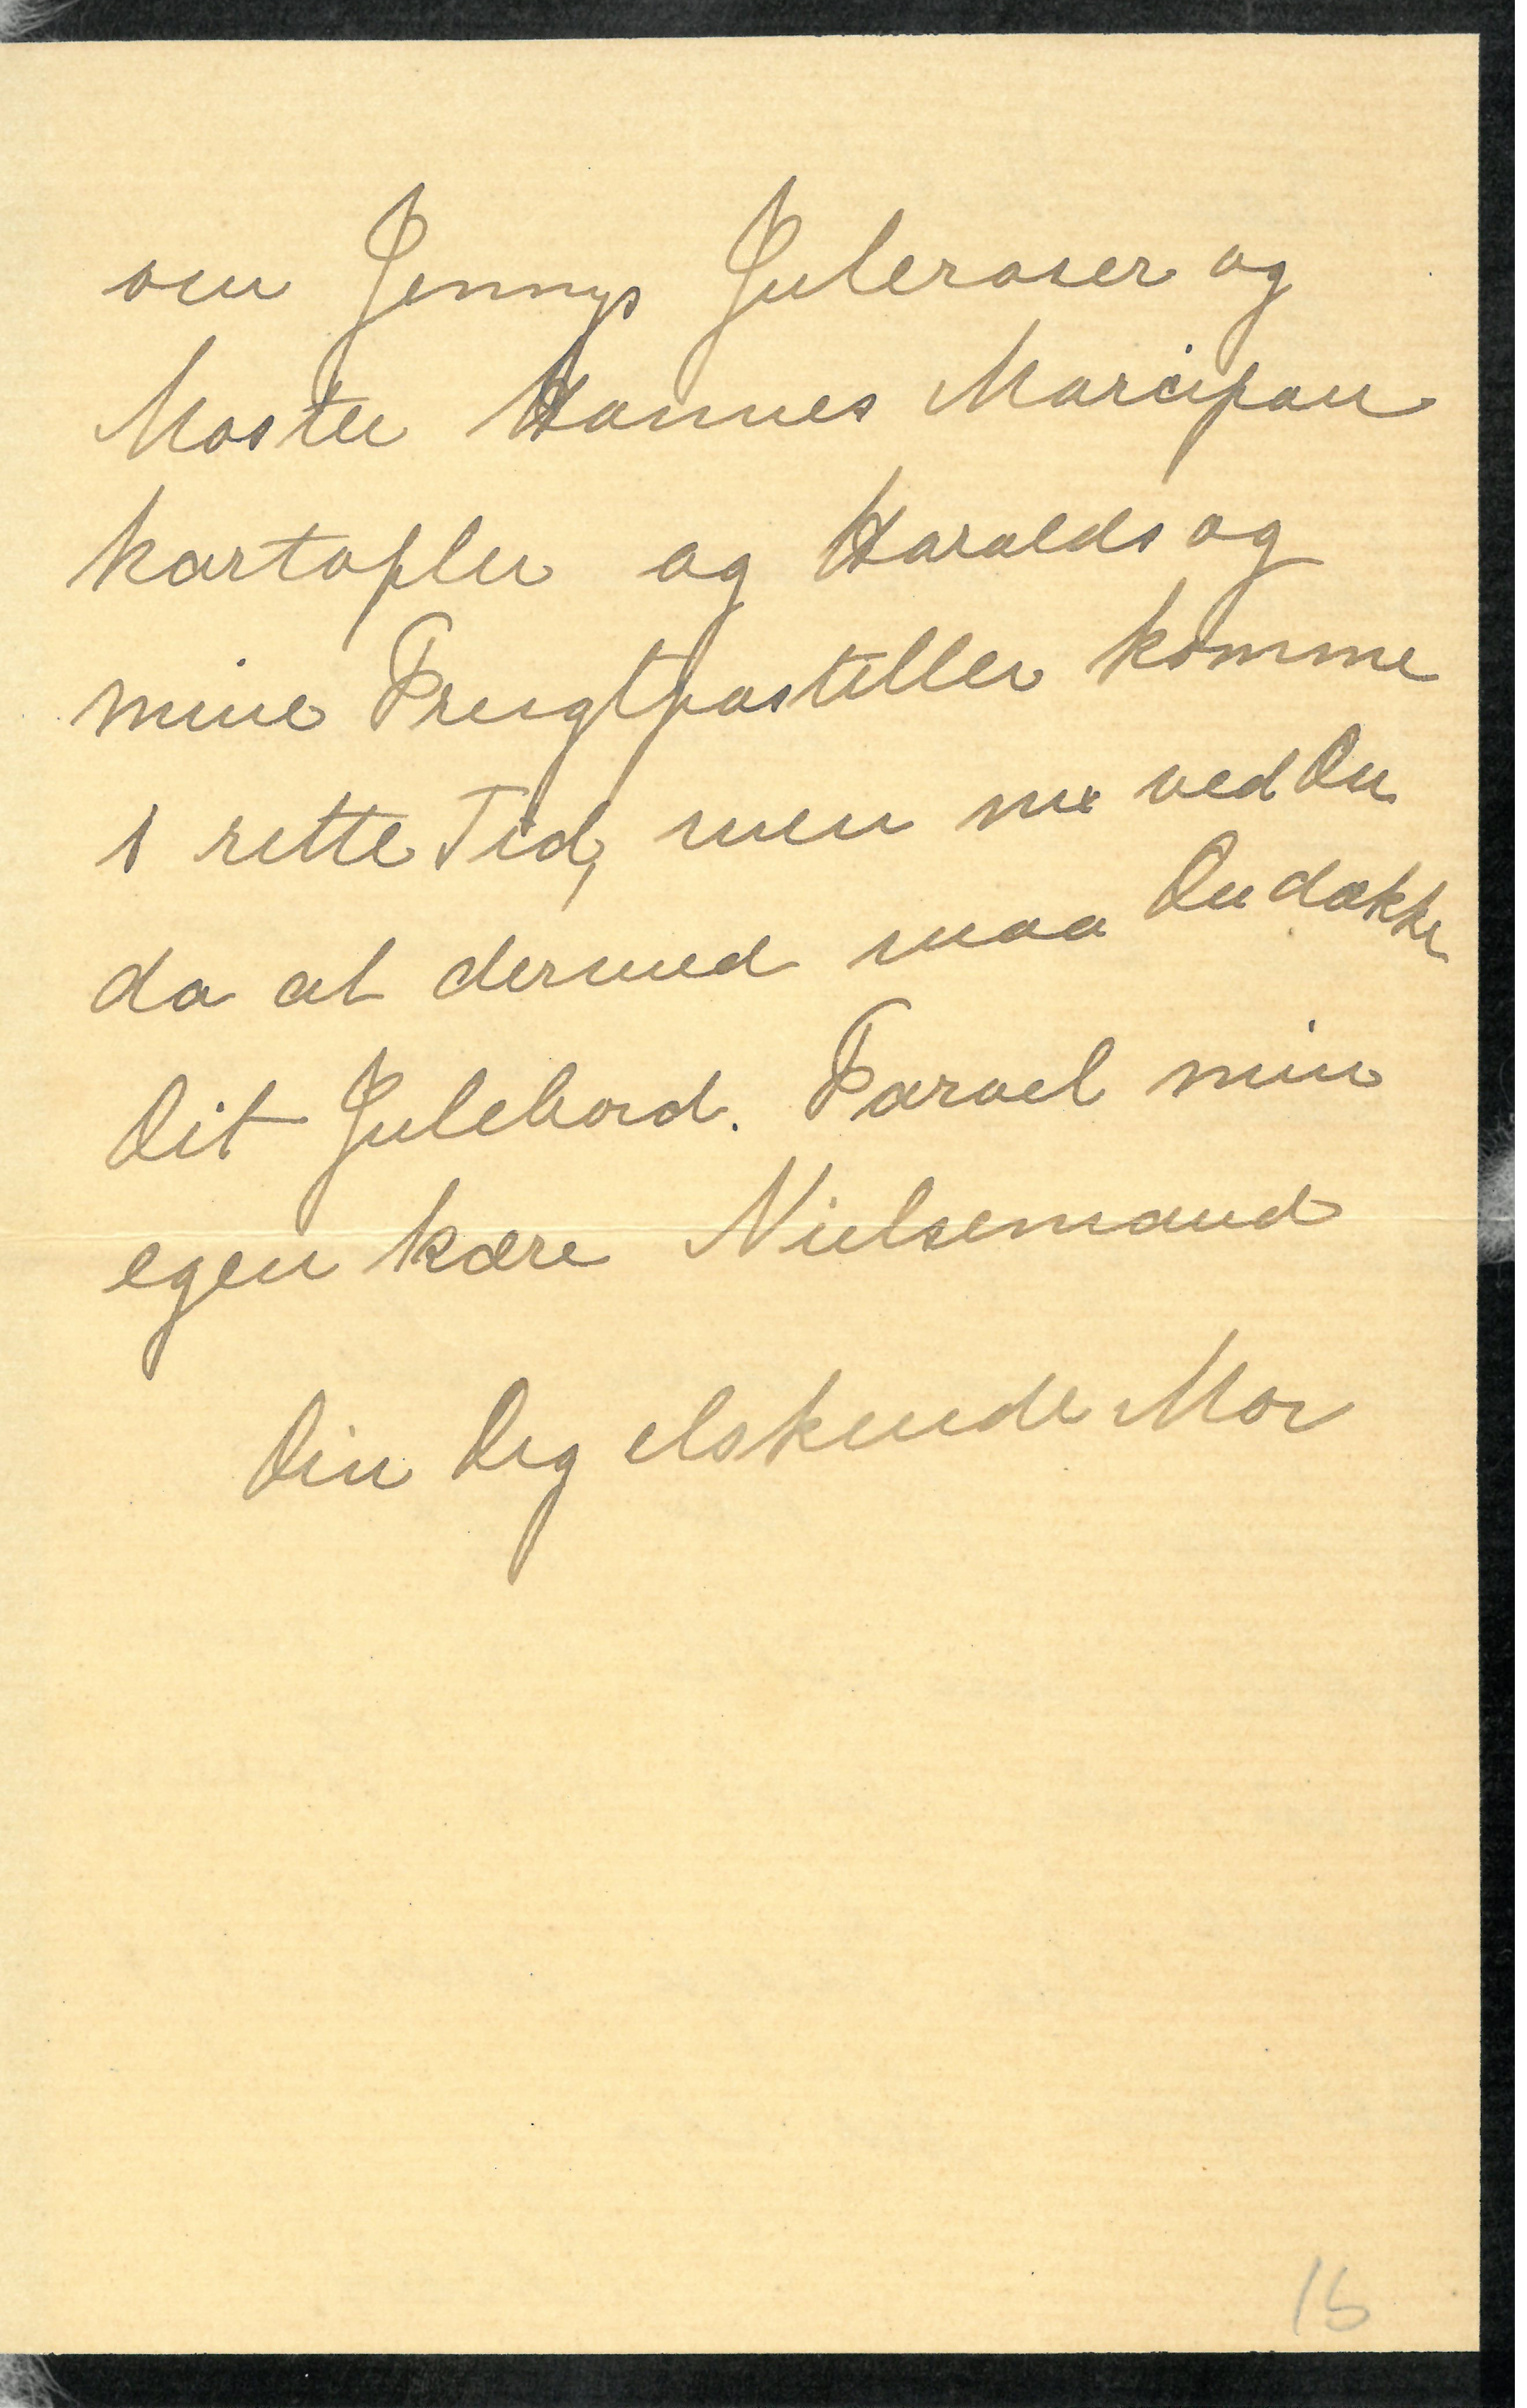 om Jennys Juleroser og
Moster Hannes Marcipan
kartofler og Haralds og
mine Frugtpastiller komme
i rette Tid, men nu ved Du
da at dermed maa Du dække
Dit Julebord. Farvel min
egen kære Nielsemand
Din Dig elskende Mor
15